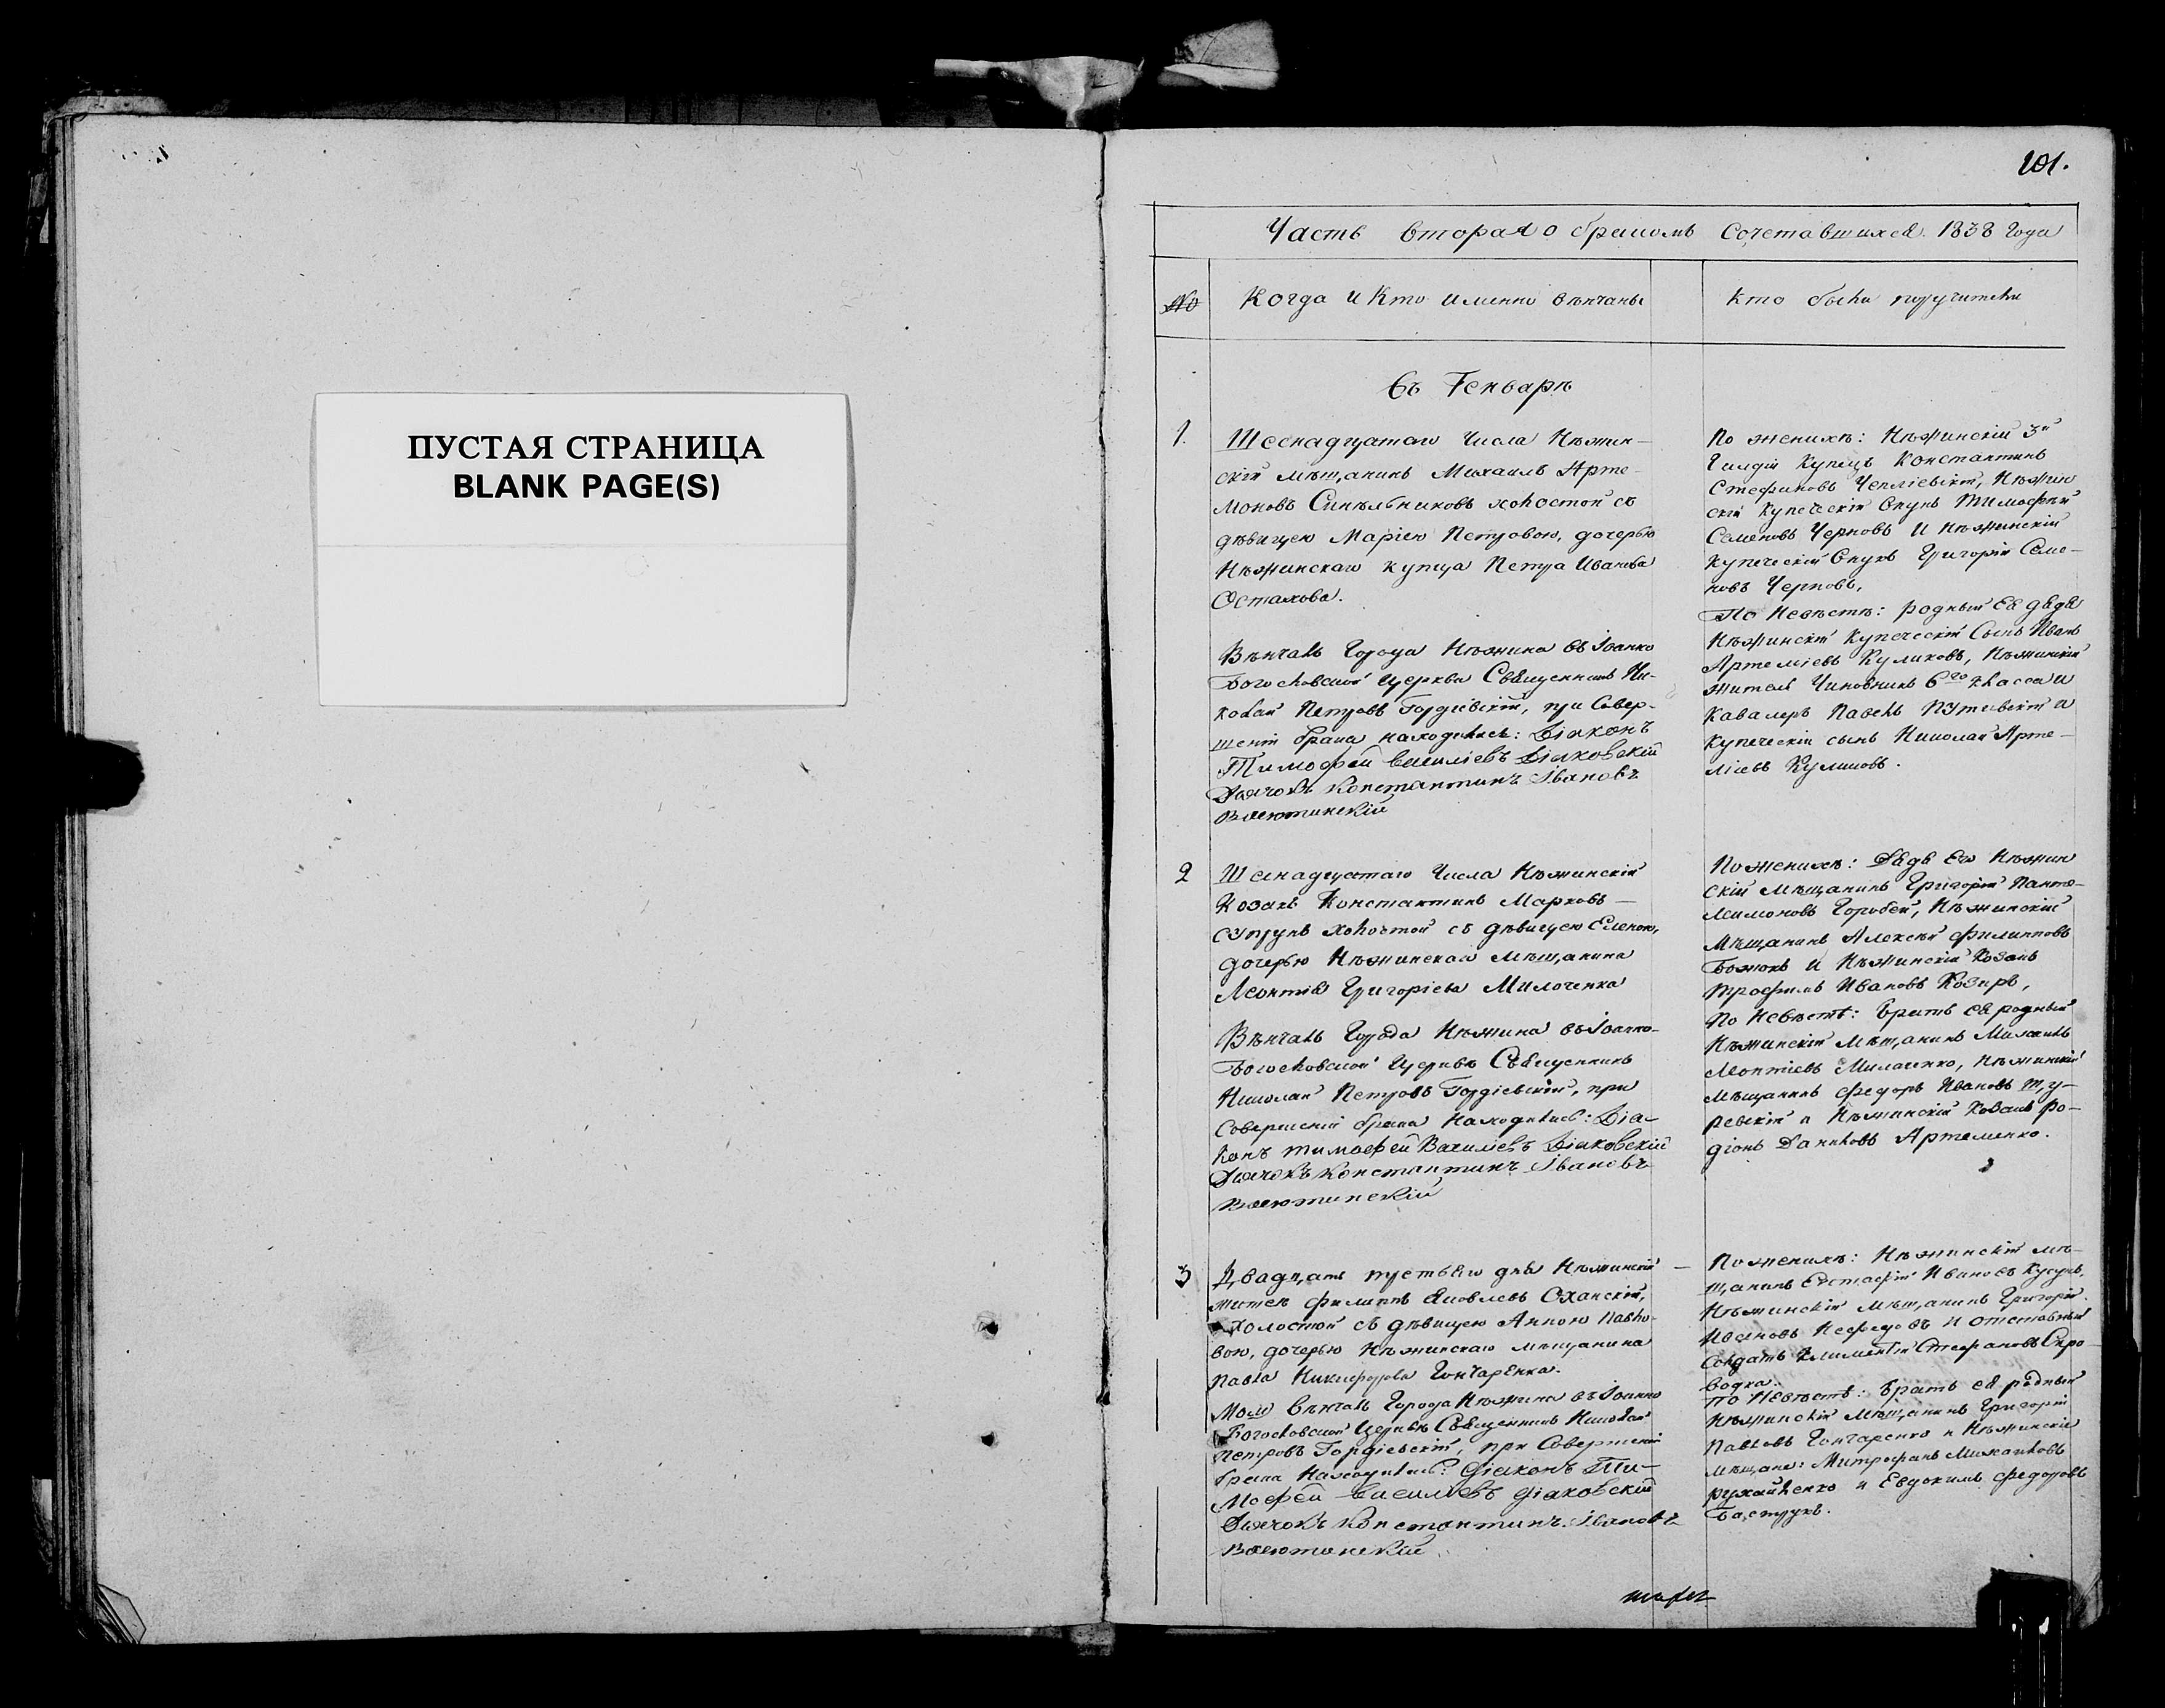 ПУСТАЯ СТРАНИЦА
BLANK PAGE(S)
201.
Часть вторая о бракомъ Сочетавшихся. 1838 года
№
Когда и Кто именно вѣнчаны
Кто были поручители
Въ Генварѣ
1.
Шеснадцатаго Числа Нѣжин-
скій мѣщанинъ Михаилъ Арте-
моновъ Синѣльниковъ холостой съ
дѣвицею Маріею Петровою, дочерью
Нѣжинскаго купца Петра Иванова
Остахова.
Вѣнчалъ Города Нѣжина въ Іоанно
Богословской Церкви Священникъ Ни-
колай Петровъ Гордіевскій, при Совер-
шеніи брака находились: Діаконъ
Тимофей Василіевъ Діаковскій
Дьячокъ Константинъ Івановъ
Васютинскій
По женихѣ: Нѣжинскій 3й
Гилдіи Купецъ Константинъ
Стефановъ Чепліевскій, Нѣжин
скій Купеческій Внукъ Тимофѣй
Семеновъ Черновъ И Нѣжинскій
Купеческій Внукъ Григорій Семе-
новъ Черновъ,
По Невѣстѣ: родный Ея дядя
Нѣжинскій Купеческій Сынъ Иванъ
Артеміевъ Куликовъ, Нѣжинскій
житель Чиновникъ 6го класса и
Кавалеръ Павелъ и
Купеческій сынъ Николай Арте-
міевъ Куликовъ.
2
Шеснадцатаго Числа Нѣжинскій
Козакъ Константинъ Марковъ
Супрунъ Холостой съ дѣвицею Еленою,
дочерью Нѣжинскаго Мѣщанина
Леонтія Григоріева Милоченка
Вѣнчалъ Города Нѣжина въ Іоанно-
Богословской Церквѣ Священникъ
Николай Петровъ Гордіевскій, при
Совершеніи брака Находились: Діа-
конъ Тимофей Василіевъ Діаковскій
Дьячокъ Константинъ Івановъ
Васютинскій
По женихѣ: Дядя Его Нѣжин
скій Мѣщанинъ Григорій Панте-
лимоновъ Горобей, Нѣжинскій
Мѣщанинъ Алексѣй Филипповъ
Божокъ И Нѣжинскій Козакъ
Трофимъ Ивановъ Козиръ,
По Невѣстѣ: Братъ ея родный
Нѣжинскій Мѣщанинъ Михаилъ
Леонтіевъ Милоченко, Нѣжинскій
Мѣщанинъ Федоръ Ивановъ Щу-
ревскій и Нѣжинскій Козакъ Ро-
діонъ Даниловъ Артеменко.
3
Двадцать третьяго дня Нѣжинскій
житель Филиппъ Яковлевъ Сханскій,
Холостой съ дѣвицею Анною Павло-
вою, дочерью Нѣжинскаго мѣщанина
Павла Никифорова Гончаренка.
Моли Вѣнчалъ Города Нѣжина въ Іоанно
Богословской Церквѣ Священникъ Николай
Петровъ Гордіевскій, при Совершеніи
брака Находились: Діаконъ Ти-
мофей Василіевъ Діаковскій
Дьячокъ Константинъ Івановъ
Васютинскій
По женихѣ: Нѣжинскій мѣ-
щанинъ Евстафій Ивановъ
Нѣжинскій мѣщанинъ Григорій
Ивановъ и отставный
Солдатъ Климентій Стефановъ Скро-
водка.
По Невѣстѣ: Братъ ея родный
Нѣжинскій Мѣщанинъ Григорій
Павловъ Гончаренко и Нѣжинскіе
Мѣщане: Митрофанъ Михайловъ
и Евдокимъ Федоровъ
Баструкъ.